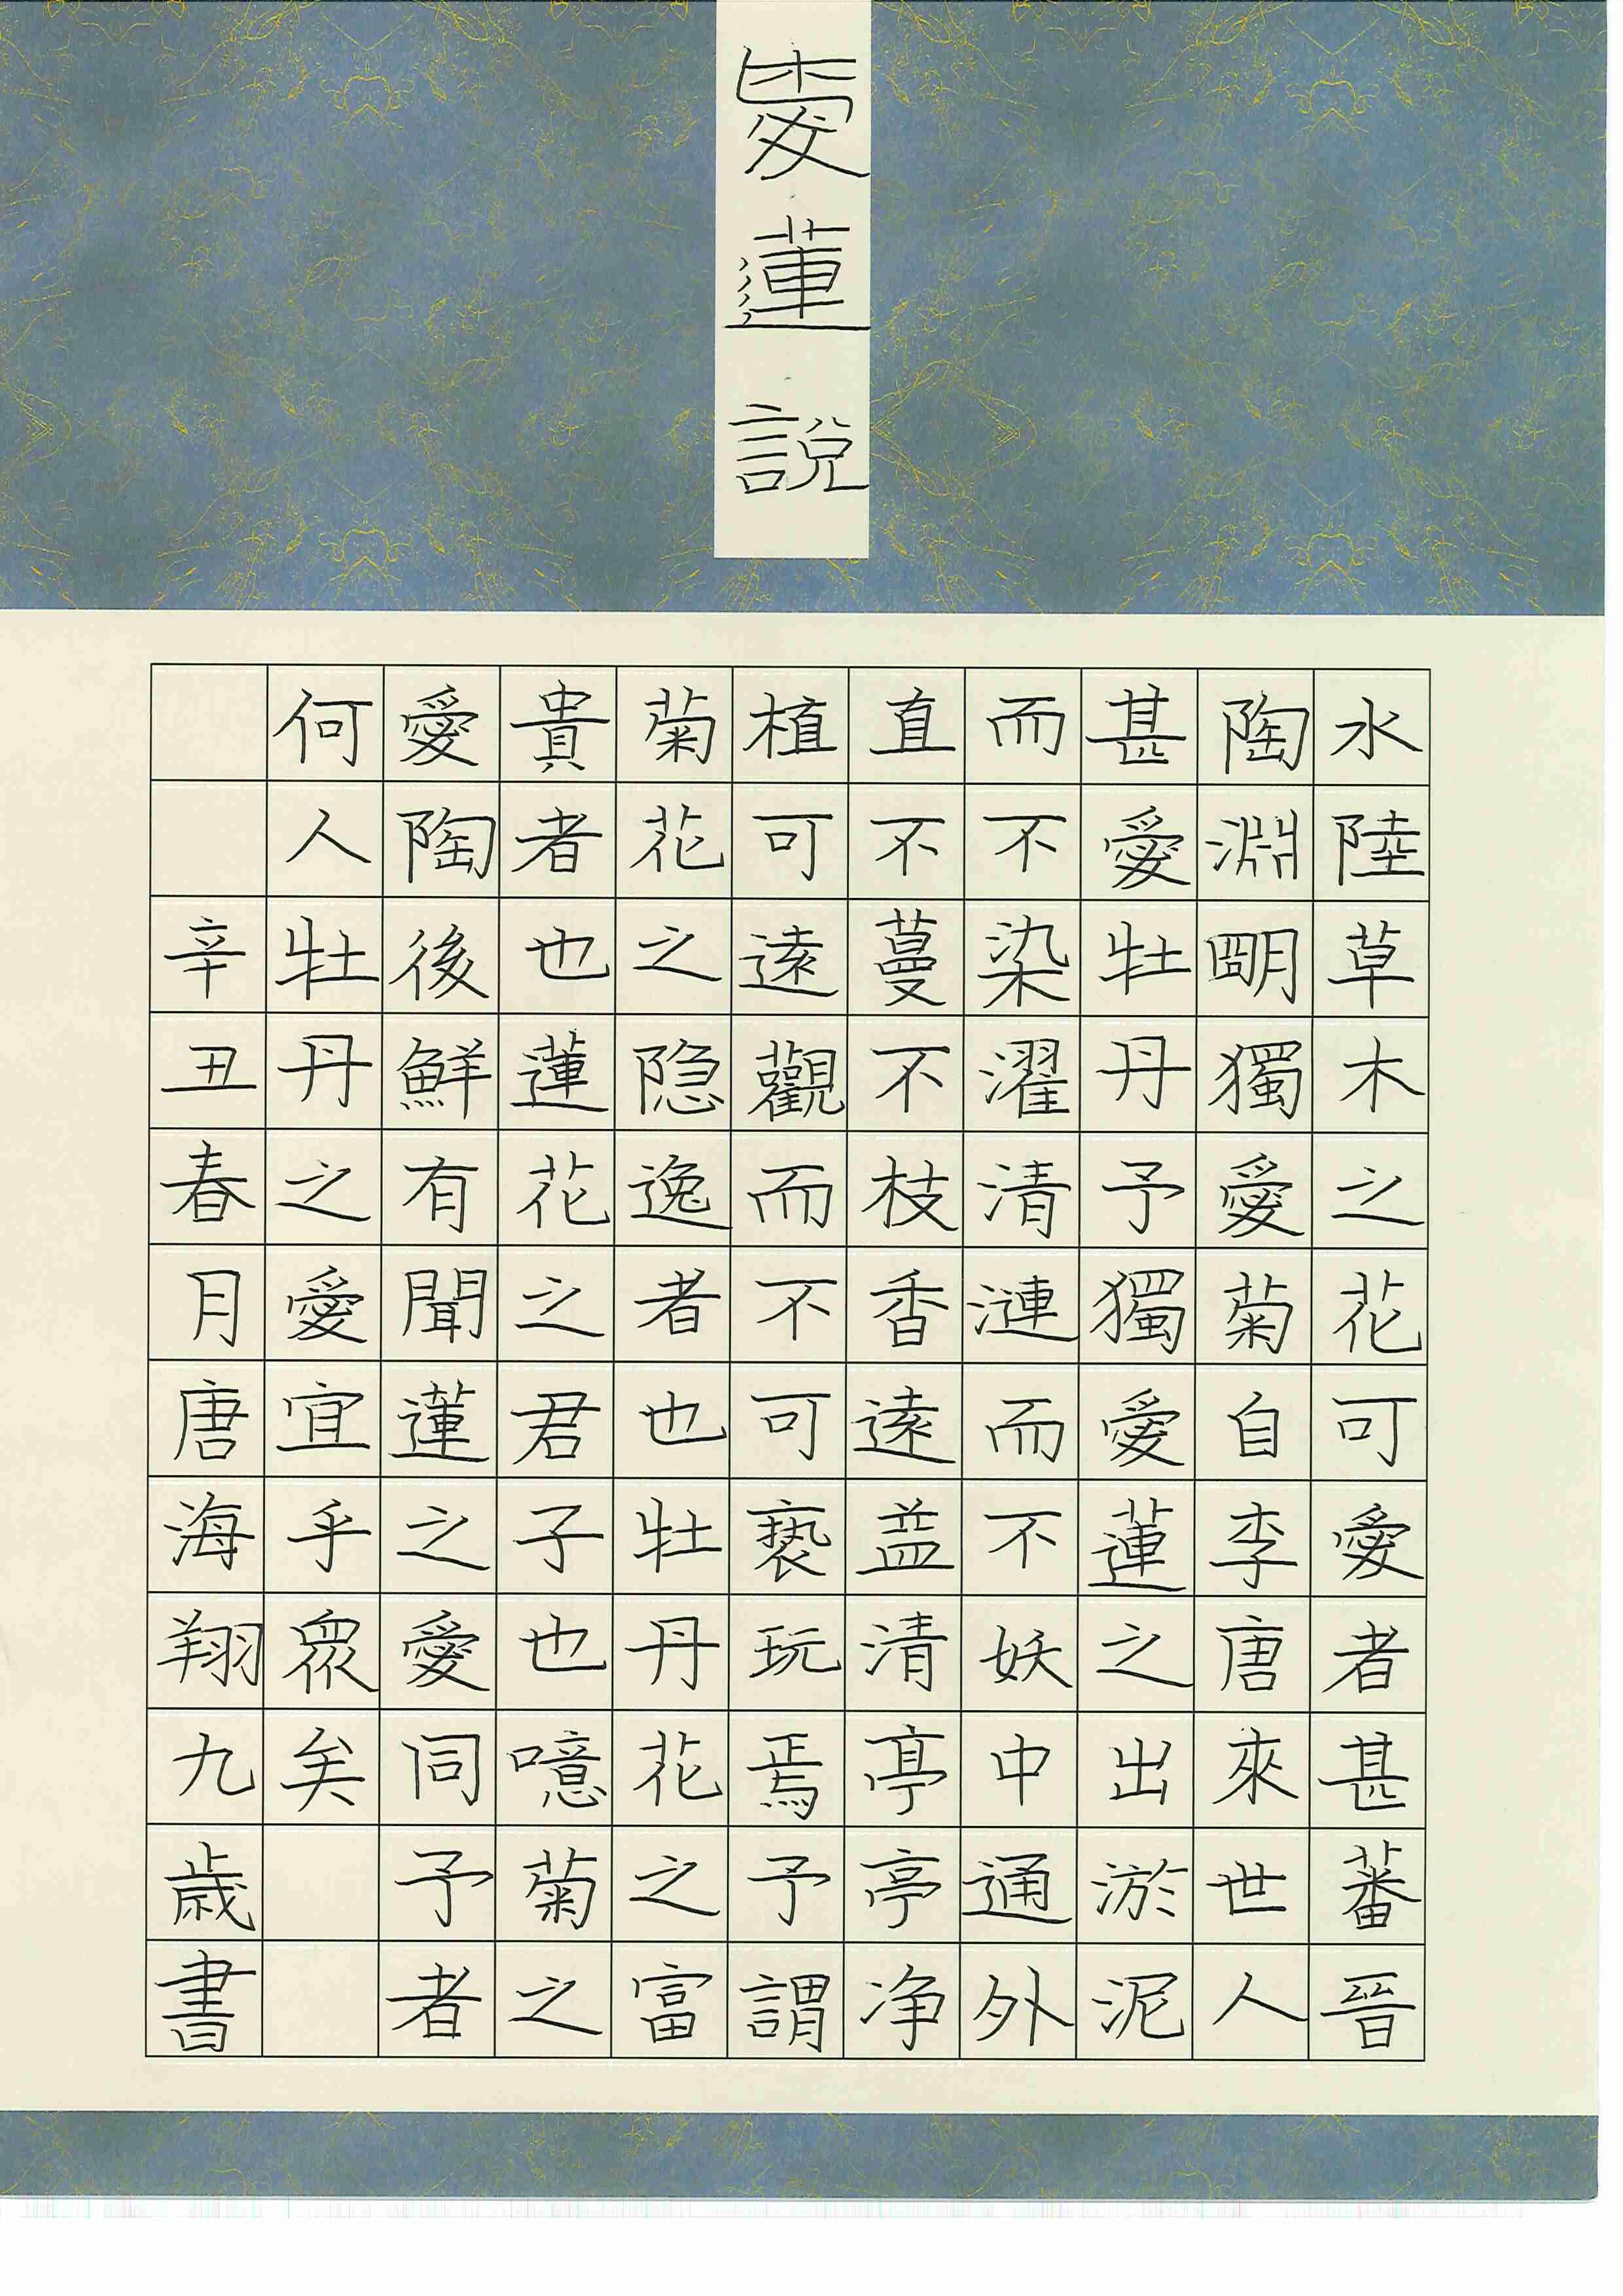 愛蓮說
水陸草木之花可愛者甚蕃晉
陶淵明獨愛菊自李唐來世人
甚愛牡丹予獨愛蓮之出淤泥
而不染濯清漣而不妖中通外
直不蔓不枝香遠益清亭亭净
植可遠觀而不可褻玩焉予謂
菊花之隐逸者也牡丹花之富
貴者也蓮花之君子也噫菊之
愛陶後鮮有聞蓮之愛同予者
何人牡丹之愛宜乎眾矣
辛丑春月唐海翔九歲書